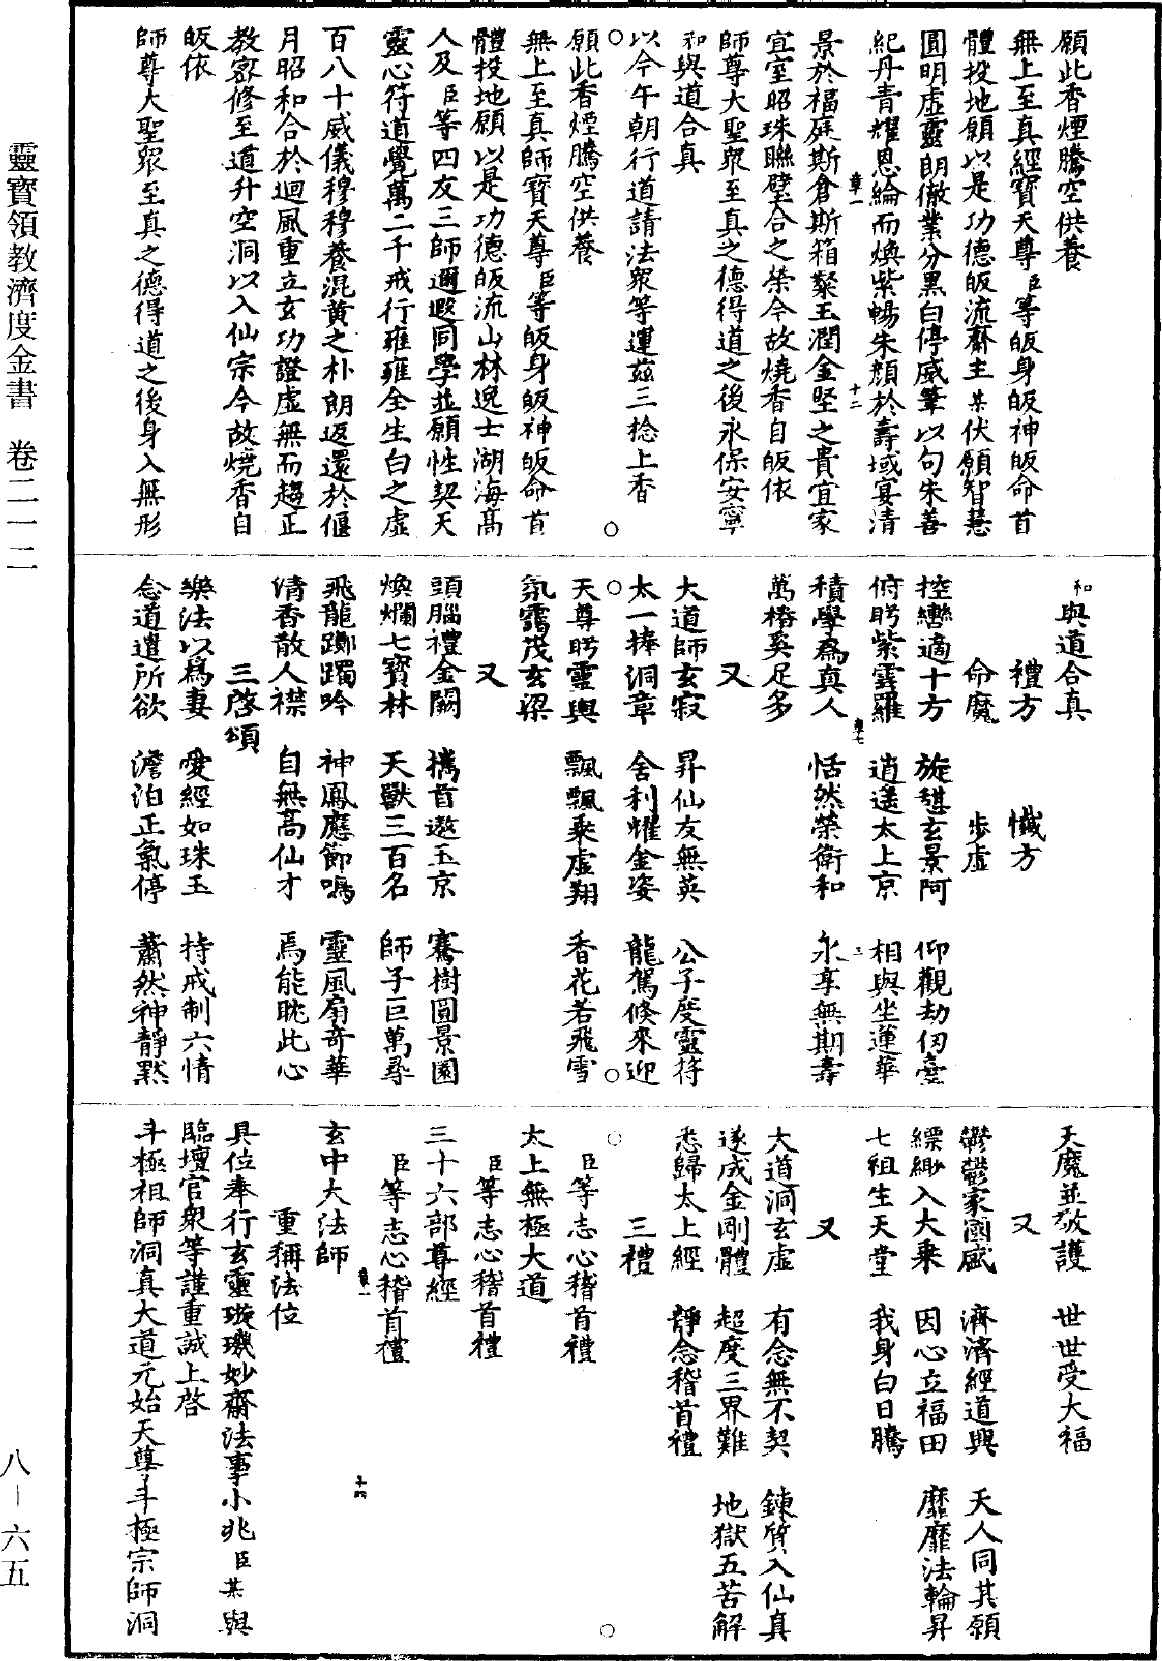 願此香煙騰空供養
無上至真經寶天尊臣等皈身皈神皈命首
體投地願以是功德皈流齋主某伏願智慧
圓明虛靈朗徹業分黑白停威筆以句朱善
紀丹青耀恩綸而煥紫暢朱顏於壽域宴清
景於福庭斯倉斯箱聚玉潤金堅之貴宜家
宜室昭珠聯璧合之榮今故燒香自皈依
師尊大聖眾至真之德得道之後永保安寧
和與道合真
以今午朝行道請法眾等運茲三捻上香
願此香煙騰空供養
無上至真師寶天尊臣等皈身皈神皈命首
體投地願以是功德皈流山林逸士湖海高
人及臣等四友三師邇遐同學並願性契天
靈心符道覺萬二千戒行雍雍全生白之虛
百八十威儀穆穆養混黃之朴朗返還於偃
月昭和合於迴風重立玄功證虛無而趨正
教密修至道升空洞以入仙宗今故燒香自
皈依
師尊大聖眾至真之德得道之後身入無形
和與道合真
禮方　懺方
命魔　步虛
控轡適十方　旋憩玄景阿　仰觀劫仞臺
俯眄紫雲羅　逍遙太上京　相與坐蓮華
積學為真人　恬然榮衛和　永享無期壽
萬椿奚足多
又
大道師玄寂　昇仙友無英　公子度靈符
太一捧洞章　舍利耀金姿　龍駕倏來迎
天尊眄靈輿　飄飄乘虛翔　香花若飛雪
氛靄茂玄梁
又
頭腦禮金闕　攜首遨玉京　騫樹圓景園
煥爛七寶林　天獸三百名　師子巨萬尋
飛龍躑躅吟　神鳳應節鳴　靈風扇奇華
清香散人襟　自無高仙才　焉能眈此心
三啓頌
樂法以爲妻　愛經如珠玉　持戒制六情
念道遣所欲　澹泊正氣停　蕭然神靜默
天魔並敬護　世世受大福
又
鬱鬱家國盛　濟濟經道興　天人同其願
縹緲入大乘　因心立福田　靡靡法輪昇
七祖生天堂　我身白日騰
又
大道洞玄虛　有念無不契　鍊質入仙真
遂成金剛體　超度三界難　地獄五苦解
悉歸太上經　靜念稽首禮
三禮
臣等志心稽首禮
太上無極大道
臣等志心稽首禮
三十六部尊經
臣等志心稽首禮
玄中大法師
重稱法位
具位奉行玄靈璇璣妙齋法事小兆臣某與
臨壇官眾等謹重誠上啓
斗極祖師洞真大道元始天尊斗極宗師洞
靈寶領教濟度金書　卷二一二
八－六五